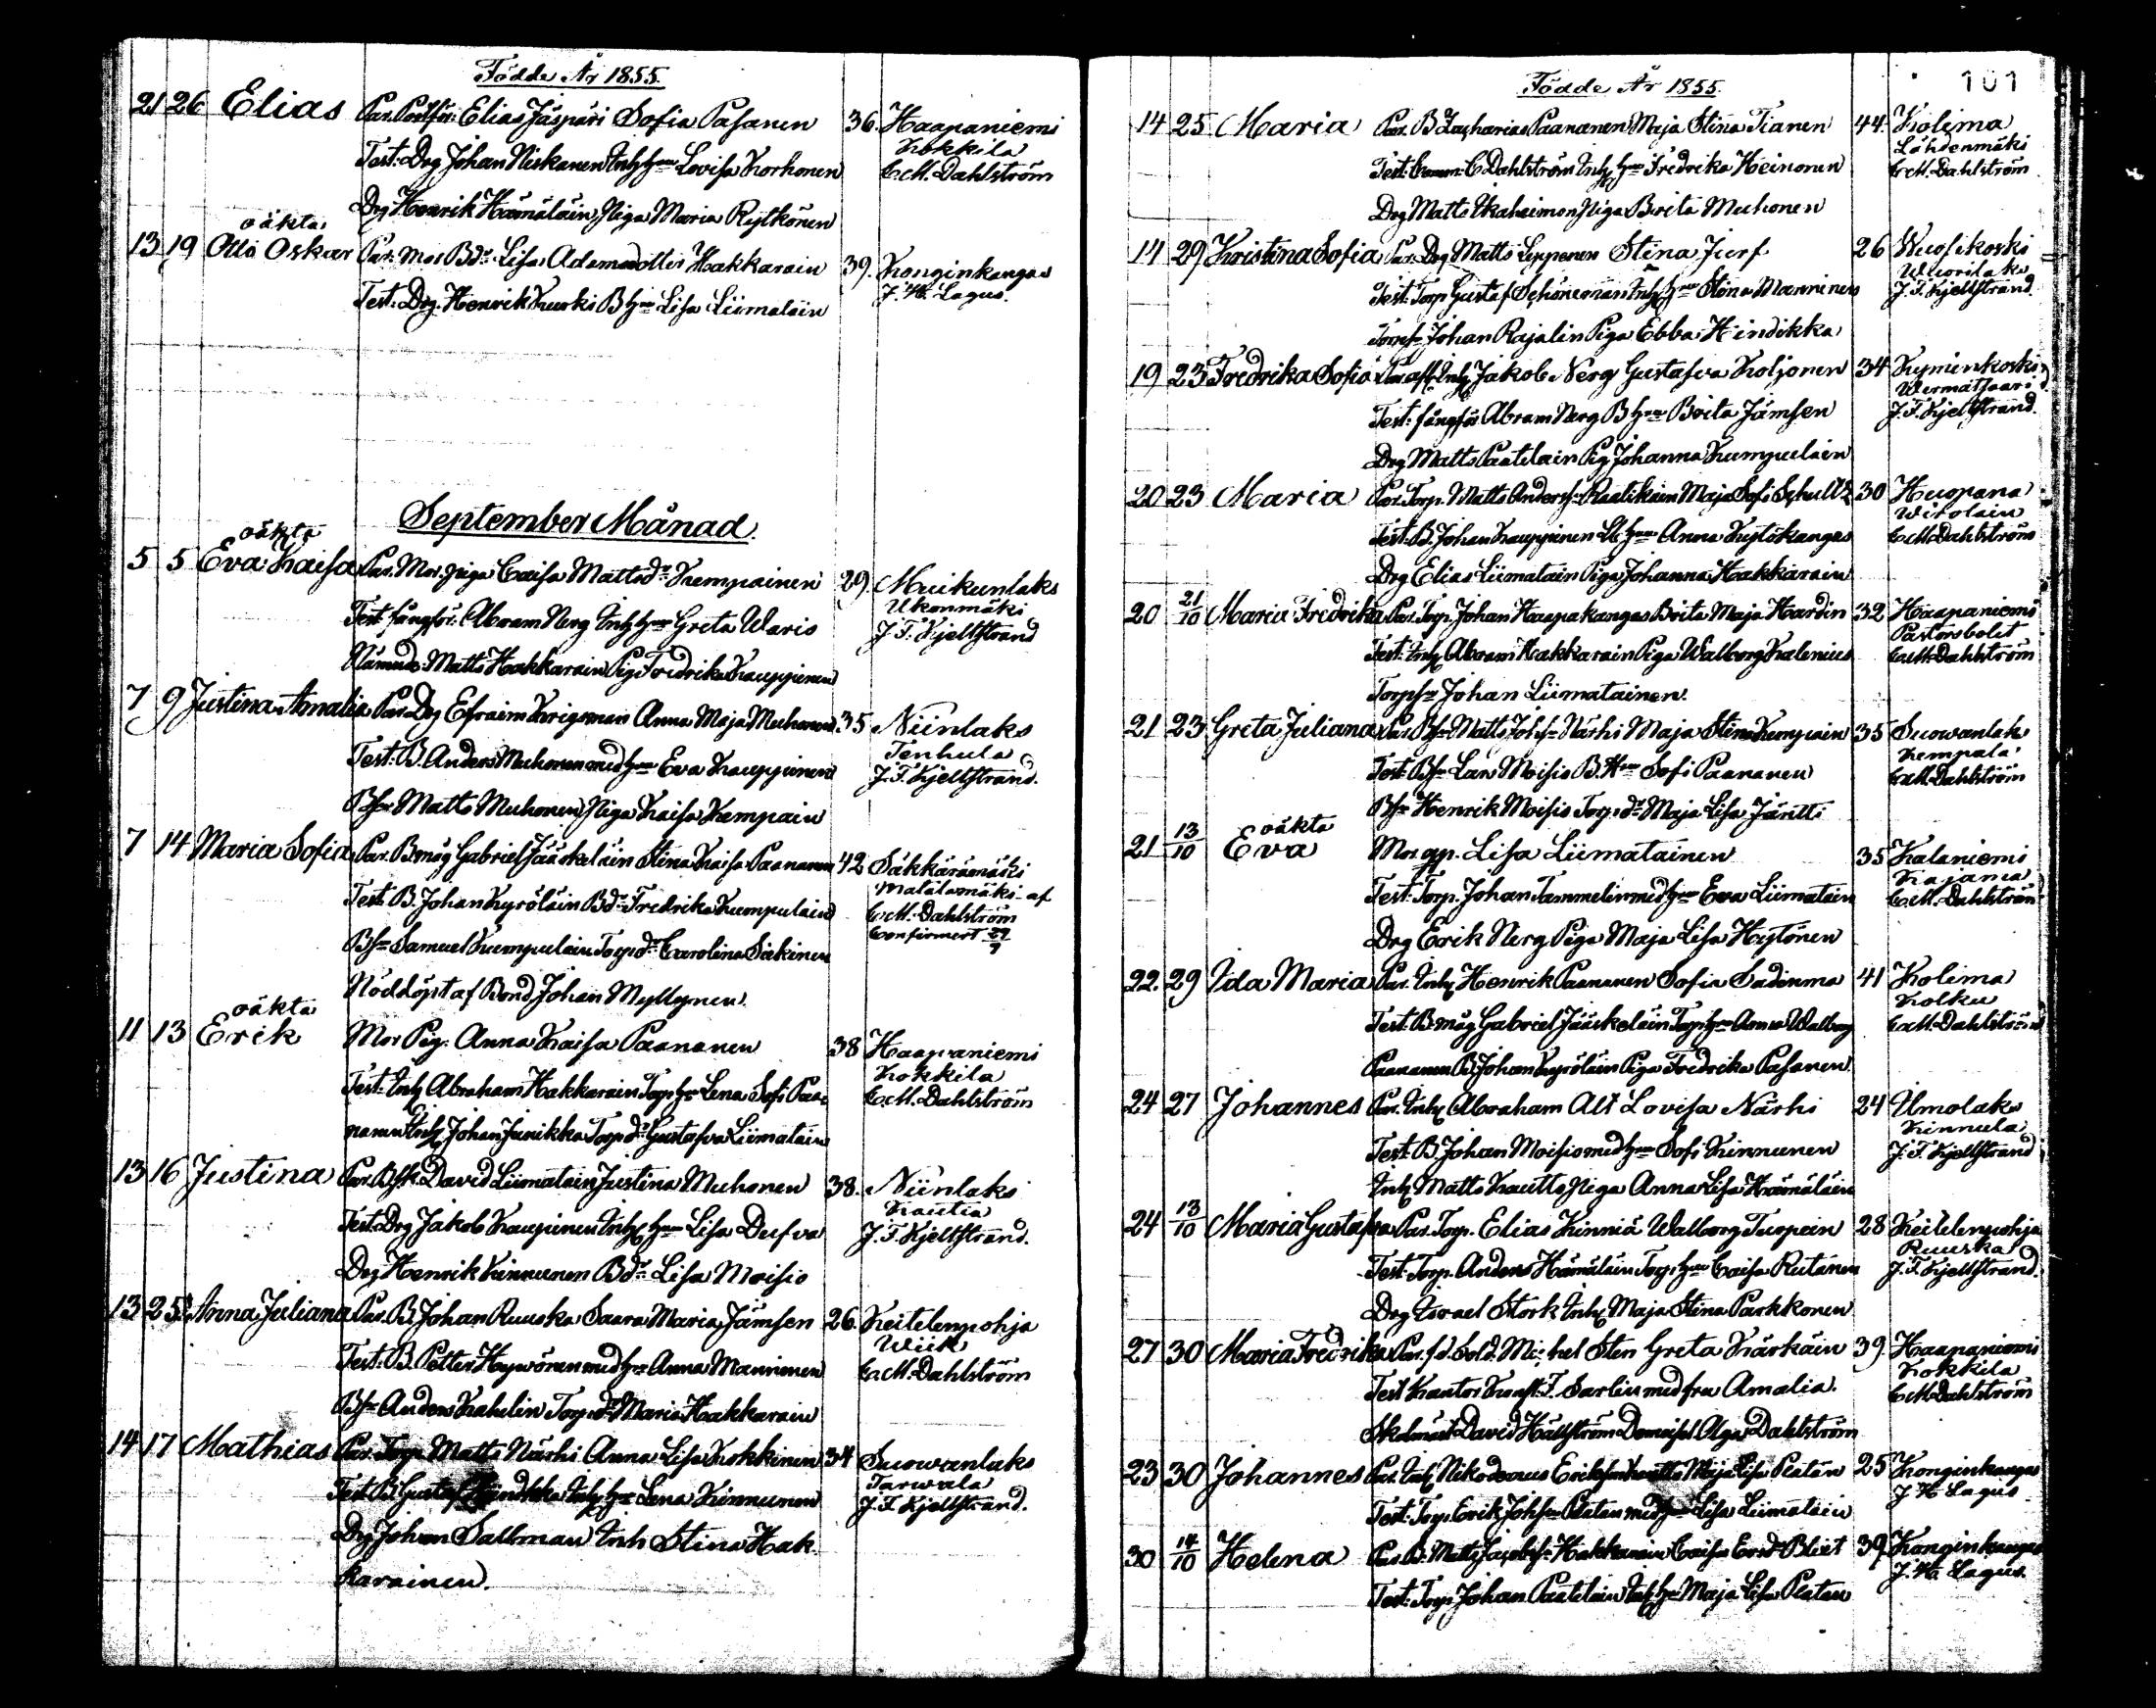 Födde År 1855.
21 26 Elias Par. Elias Jäspäri Sofia Pasanen 36. Haapaniemi
Kokkila
Test: Drg Johan Niskanen Inh hru Lovisa Korhonen C.M. Dahlström
Drg Henrik Hämäläin, Piga Maria Rytkönen
oäkta
13 19 Otto Oskar Par. Mor Bdr Lisa Adamsdotter Hakkarain 39. Konginkangas
J. H. Lagus.
Test: Drg. Henrik Ruuski B hru Lisa Liimatain
September Månad.
oäkta
5 5 Eva Kaisa Par. Mor. Piga Caisa Mattsdr Kempainen 29. Muikunlaks
Ukonmäki
Test fångför. Abram Nerg Inh hru Greta Waris J. F. Kjellstrand
Nämnde. Matts Hakkarain Pig. Fredrika Kauppinen
7 9 Justina Amalia Par. Drg Efraim Krigsman Anna Maja Muhonen 35 Niinlaks
Tenhula
Test: B. Anders Muhonen med hru Eva Kauppinen J. F. Kjellstrand.
Bsn Matts Muhonen, Piga Kaisa Kempain
7 14 Maria Sofia Par. Bmåg Gabriel Jääskeläin Stina Kaisa Paananen 42 Säkkärämäki
Matälamäki af
Test B. Johan Kyröläin Bdr Fredrika Kumpulain C.M. Dahlström
Confirmert 29/9
Bsn Samuel Kumpulain Torp.dr Carolina Siekinen
Nöddöpt af Bond Johan Myllynen.
oäkta
11 13 Erik Mor Pig. Anna Kaisa Paananen 38 Haapaniemi
Kokkila
Test: Inh Abraham Hakkarain Torp. hru Lena Sofi Paa- C.M. Dahlström
nanen Inh Johan Junikka Torp dr Gustafva Liimatain
13 16 Justina Par. Bsn David Liimatain Justina Muhonen 38. Niinlaks
Kautia
Test: Drg Jakob Kauppinen Inh hru Lisa Dufva J. F. Kjellstrand.
Drg Henrik Kinnunen Bdr Lisa Moisio
13 25 Anna Juliana Par. B. Johan Ruuska Saara Maria Jämsen 26. Keitelenpohja
Wiik
Test: B. Petter Hyvönen med hru Anna Manninen C.M. Dahlström
Bsn Anders Kahelin Torp. dr Maria Hakkarain
14 17 Mathias Par. Torp. Matts Närhi Anna Lisa Kokkinen 34 Suovanlaks
Tarvala
Test. B. Gustaf Hindikka Inh hru Lena Kinnunen J. F. Kjellstrand.
Drg Johan Sallman Inh Stina Hak-
karainen.
Födde År 1855.
101
14 25 Maria Par. B Zacharias Paananen Maja Stina Tianen 44. Kolima
Lähdenmäki
Test: C Dahlström Inh hru Fredrika Heinonen C.M. Dahlström
Drg Matts Ikaheimon Piga Brita Muhonen
14 29 Kristina Sofia Par. Drg Matts Lepponen Stina Jurf 26 Wuosikoski
Wuorilaks
Test. Torp Gustaf Schöneman Inh hru Stina Manninen J. F. Kjellstrand.
Torpsn Johan Rajalin Piga Ebba Hindikka
19 23 Fredrika Sofia Par. Inh Jakob Nerg Gustafva Koljonen 34 Kyminkoski
Wermassaari
Test: fångför Abram Nerg B hru Brita Jämsen J. F. Kjellstrand.
Drg Matts Paatelain Pig Johanna Kumpulain
20 23 Maria Par. Torp. Matts Anders. Raatikain Maja Sofi Schultz 30 Huopana
Witolain
Test. B. Johan Kauppinen hru Anna Kytökangas C.M. Dahlström
Drg Elias Liimatain Piga Johanna Hakkarain
20 21/10 Maria Fredrika Par. Torp. Johan Haapakangas Brita Maja Hardin 32 Haapaniemi
Pastorsbolet
Test: Inh Abram Hakkarain Piga Walborg Kalenius C.M. Dahlström
Torpsn Johan Liimatainen.
21 23 Greta Juliana Par. Bsn Matts Johsn Närhi Maja Stina Kempain 35 Suovanlak
Kempala
Test. Bsn Lars Moisio B. Hru Sofi Paananen C.M. Dahlström
Bsn Henrik Moisio Torp. dr Maja Lisa Jäntti
oäkta
21 13/10 Eva Mor gp. Lisa Liimatainen 35 Kalaniemi
Kajania
Test: Torp. Johan Tammelin med hru Eva Liimatain C.M. Dahlström
Drg Erik Nerg Piga Maja Lisa Hytönen
22. 29 Ida Maria Par. Inh Henrik Paananen Sofia Sadinma 41 Kolima
Kolku
Test. Bmåg Gabriel Jääskeläin Torp hru Anna Walborg C.M. Dahlström
Paananen B. Johan Kyröläin Piga Fredrika Pasanen
24 27 Johannes Par. Inh Abraham Alt Lovisa Närhi 24 Umolaks
Kinnula
Test. B. Johan Moisio med hru Sofi Kinnunen J. F. Kjellstrand
Inh Matts Kautto Piga Anna Lisa Hämäläin
24 13/10 Maria Gustafva Par. Torp. Elias Kinniä Walborg Turpein 28 Keitelenpohja
Ruuska
Test: Torp. Anders Hämäläin Torp. hru Caisa Rutanen J. F. Kjellstrand.
Drg Israel Stork Inh Maja Stina Parkkonen
27 30 Maria Fredrika Par. fd. Sold. Michel Sten Greta Kärkäin 39. Haapaniemi
Kokkila
Test Kantor T. Sarlin med fru Amalia. C.M. Dahlström
Skolmäst David Hällström Demoisel Olga Dahlström
23 30 Johannes Par. Inh Nikodemus Eriksson Kautto Maja Lisa Platan 25 Konginkangas
J. H. Lagus
Test: Torp. Erik Johsn Platan med hru Lisa Liimatain
30 14/10 Helena Par. B. Matts Jacobsn Hakkarain Caisa Ersdr Blixt 39. Konginkangas
J. H. Lagus.
Test: Torp. Johan Paatelain Inh hru Maja Lisa Platan